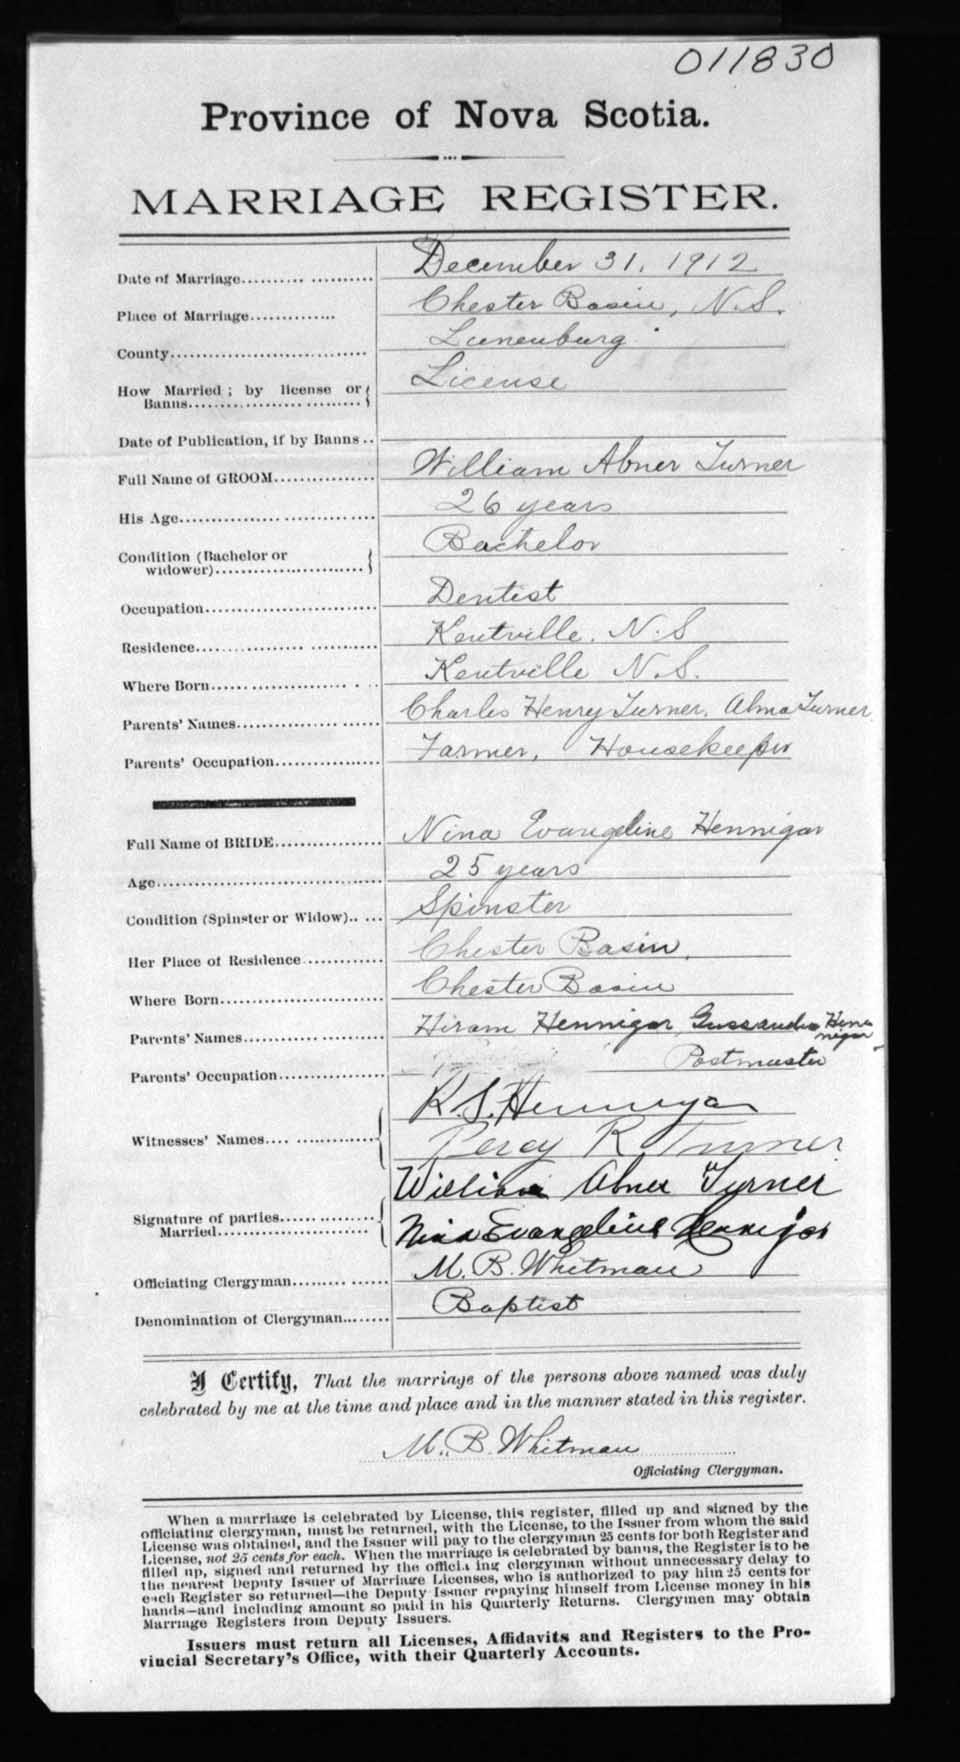 011830
Province of Nova Scotia.
MARRIAGE REGISTER.
Date of Marriage........................ December 31, 1912
Place of Marriage.............. Chester Basin, N.S.
County................................ Lunenburg
How Married ; by license or Banns............................ License
Date of Publication, if by Banns ..
Full Name of GROOM................. William Abner Turner
His Age................................ 26 years
Condition (Bachelor or widower)........................ Bachelor
Occupation............................ Dentist
Residence............................. Kentville, N.S
Where Born.......................... Kentville N.S.
Parents' Names....................... Charles Henry Turner, Alma Turner
Parents' Occupation................. Farmer, Housekeeper
Full Name of BRIDE................. Nina Evangeline Hennigar
Age..................................... 25 years
Condition (Spinster or Widow)....... Spinster
Her Place of Residence............. Chester Basin,
Where Born.......................... Chester Basin
Parents' Names....................... Hiram Hennigar, Hennigar
Parents' Occupation................. Postmaster
Witnesses' Names.................... K.S. Hennigar
Percy R. Turner
Signature of parties Married............... William Abner Turner
Nina Evangeline Hennigar
Officiating Clergyman............... M. B. Whitman
Denomination of Clergyman........ Baptist
I Certify, That the marriage of the persons above named was duly
celebrated by me at the time and place and in the manner stated in this register.
M. B. Whitman
Officiating Clergyman.
When a marriage is celebrated by License, this register, filled up and signed by the
officiating clergyman, must be returned, with the License, to the Issuer from whom the said
License was obtained, and the Issuer will pay to the clergyman 25 cents for both Register and
License, not 25 cents for each. When the marriage is celebrated by banns, the Register is to be
filled up, signed and returned by the officiating clergyman without unnecessary delay to
the nearest Deputy Issuer of Marriage Licenses, who is authorized to pay him 25 cents for
each Register so returned—the Deputy Issuer repaying himself from License money in his
hands—and including amount so paid in his Quarterly Returns. Clergymen may obtain
Marriage Registers from Deputy Issuers.
Issuers must return all Licenses, Affidavits and Registers to the Pro-
vincial Secretary's Office, with their Quarterly Accounts.